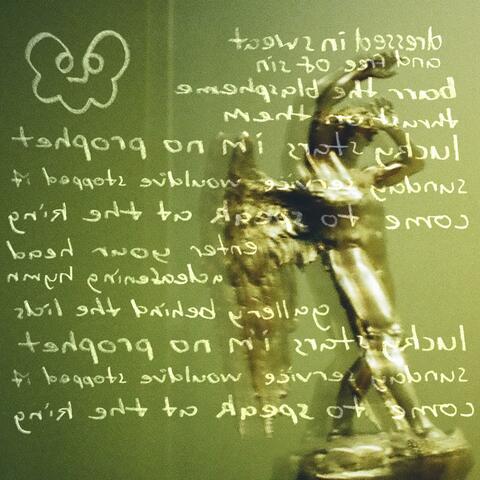 dressed in sweat
and free of sin
barr the blaspheme
them
lucky stars i'm no prophet
sunday service would've stopped it
come to speak at the king
enter your head
a deafening hymn
gallery behind the lids
lucky stars i'm no prophet
sunday service would've stopped it
come to speak at the king